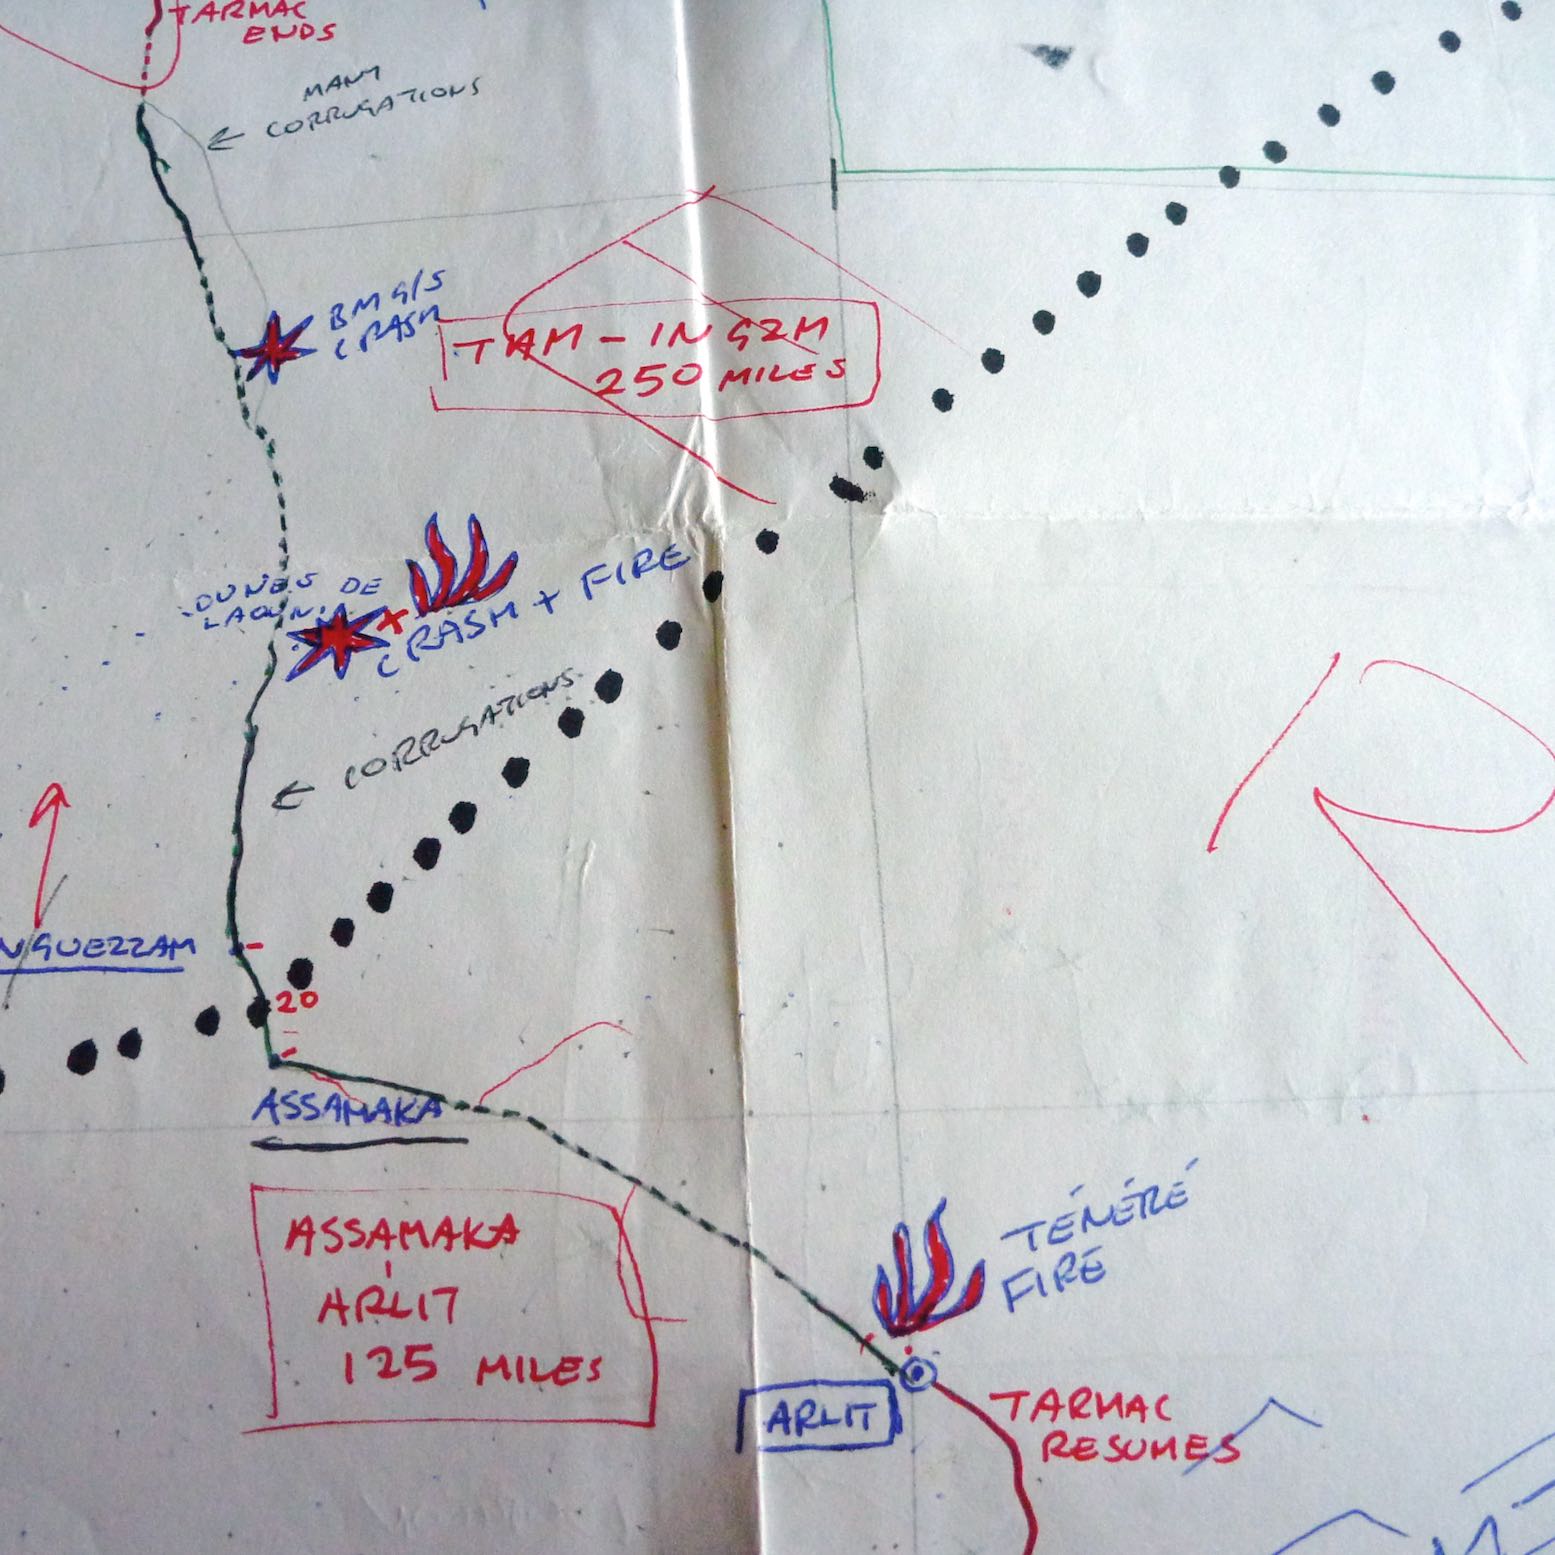 TARMAC
ENDS
MANY
CORRUGATIONS
BM G/S
CRASH
TAM - IN GZM
250 MILES
DUNES DE
LAOUNI
CRASH + FIRE
CORRUGATIONS
NGUEZZAM
20
ASSAMAKA
ASSAMAKA
-
ARLIT
125 MILES
TÉNÉRÉ
FIRE
ARLIT
TARMAC
RESUMES
R